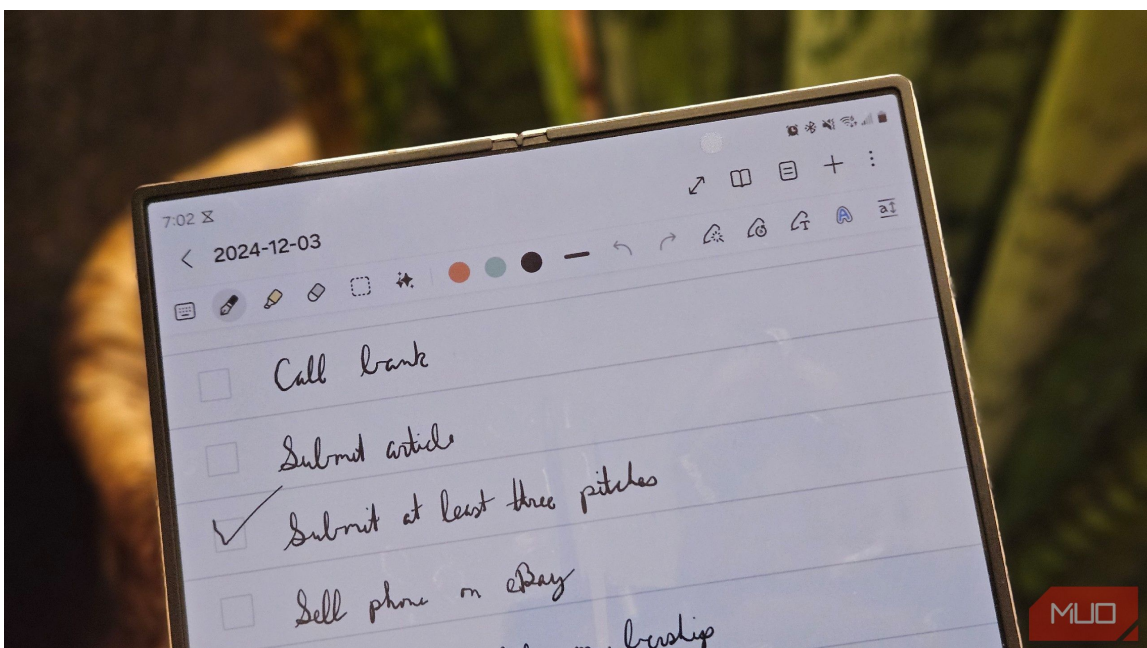 7:02
2024-12-03
Call bank
Submit article
Submit at least three pitches
Sell phone on eBay
MUO